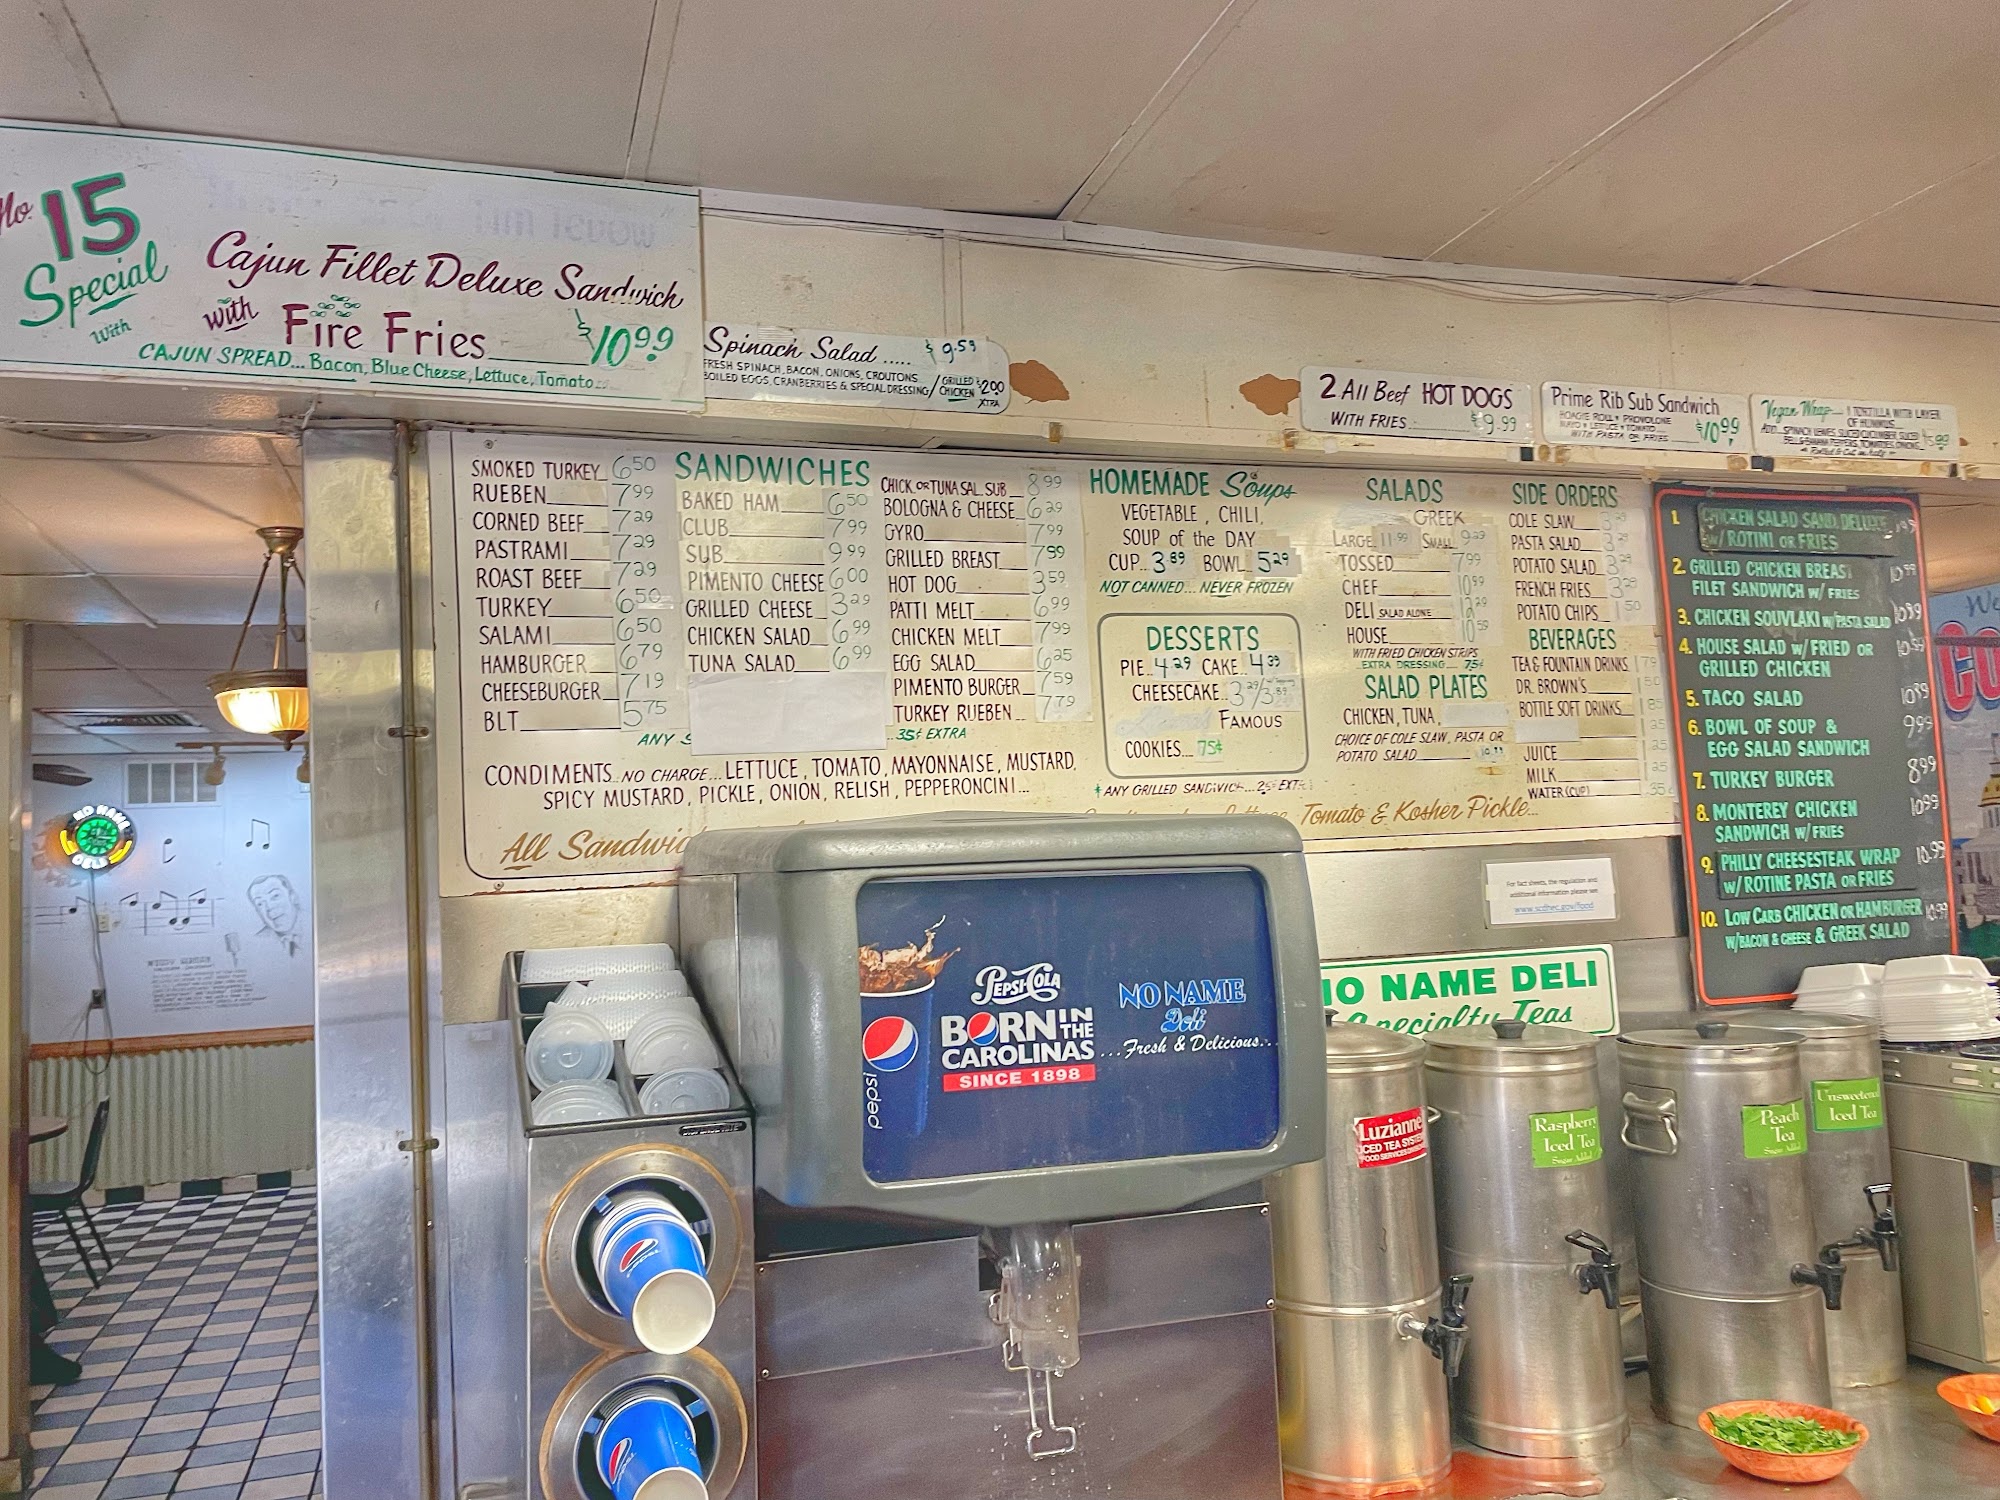 No. 15
Special
With
Cajun Fillet Deluxe Sandwich
with Fire Fries $10.99
CAJUN SPREAD... Bacon, Blue Cheese, Lettuce, Tomato...
Spinach Salad ..... $9.59
FRESH SPINACH, BACON, ONIONS, CROUTONS
BOILED EGGS, CRANBERRIES & SPECIAL DRESSING / GRILLED CHICKEN $2.00 XTRA
2 All Beef HOT DOGS
WITH FRIES... $9.99
Prime Rib Sub Sandwich
HOAGIE ROLL • PROVOLONE
MAYO • LETTUCE • TOMATO
WITH PASTA OR FRIES $10.99
Vegan Wrap 1 TORTILLA WITH LAYER
OF HUMMUS
ADD... SPINACH LEAVES, SLICED CUCUMBER, SLICED
BELL & BANANA PEPPERS, TOMATOES, ONIONS
Rolled & Cut in half
SMOKED TURKEY 6.50
RUEBEN 7.99
CORNED BEEF 7.29
PASTRAMI 7.29
ROAST BEEF 7.29
TURKEY 6.50
SALAMI 6.50
HAMBURGER 6.79
CHEESEBURGER 7.19
BLT 5.75
SANDWICHES
BAKED HAM 6.50
CLUB 7.99
SUB 9.99
PIMENTO CHEESE 6.00
GRILLED CHEESE 3.29
CHICKEN SALAD 6.99
TUNA SALAD 6.99
CHICK. OR TUNA SAL. SUB 8.99
BOLOGNA & CHEESE 6.29
GYRO 7.99
GRILLED BREAST 7.99
HOT DOG 3.59
PATTI MELT 6.99
CHICKEN MELT 7.99
EGG SALAD 6.25
PIMENTO BURGER 7.59
TURKEY RUEBEN 7.79
ANY S 35¢ EXTRA
CONDIMENTS NO CHARGE... LETTUCE, TOMATO, MAYONNAISE, MUSTARD,
SPICY MUSTARD, PICKLE, ONION, RELISH, PEPPERONCINI...
All Sandwic Tomato & Kosher Pickle...
HOMEMADE Soups
VEGETABLE, CHILI,
SOUP of the DAY
CUP.. 3.89 BOWL 5.29
NOT CANNED... NEVER FROZEN
DESSERTS
PIE 4.29 CAKE.. 4.39
CHEESECAKE.. 3.29/3.89
FAMOUS
COOKIES... 75¢
* ANY GRILLED SANDWICH... 25¢ EXT
SALADS
GREEK
LARGE 11.99 SMALL 9.29
TOSSED 7.99
CHEF 10.99
DELI SALAD ALONE 12.29
HOUSE 10.59
WITH FRIED CHICKEN STRIPS
EXTRA DRESSING 75¢
SALAD PLATES
CHICKEN, TUNA,
CHOICE OF COLE SLAW, PASTA OR
POTATO SALAD
SIDE ORDERS
COLE SLAW 3.29
PASTA SALAD 3.29
POTATO SALAD 3.29
FRENCH FRIES 3.29
POTATO CHIPS 1.50
BEVERAGES
TEA & FOUNTAIN DRINKS 1.79
DR. BROWN'S
BOTTLE SOFT DRINKS
JUICE
MILK
WATER (CUP) .35
1. CHICKEN SALAD SAND. DELUXE
W/ ROTINI OR FRIES
2. GRILLED CHICKEN BREAST 10.99
FILET SANDWICH W/ FRIES
3. CHICKEN SOUVLAKI W/ PASTA SALAD 10.99
4. HOUSE SALAD W/ FRIED OR 10.59
GRILLED CHICKEN
5. TACO SALAD 10.99
6. BOWL OF SOUP & 9.99
EGG SALAD SANDWICH
7. TURKEY BURGER 8.99
8. MONTEREY CHICKEN 10.99
SANDWICH W/ FRIES
9. PHILLY CHEESESTEAK WRAP 10.99
W/ ROTINE PASTA OR FRIES
10. LOW CARB CHICKEN OR HAMBURGER 10.99
W/BACON & CHEESE & GREEK SALAD
For fact sheets, the regulation and
additional information please see
www.scdhec.gov/food
IO NAME DELI
Specialty Teas
NO NAME
DELI
PEPSI-COLA
BORN IN THE
CAROLINAS
SINCE 1898
pepsi
NO NAME
Deli
...Fresh & Delicious...
Luzianne
ICED TEA SYSTE
Raspberry
Iced Tea
Sugar Added
Peach
Tea
Sugar Added
Unsweetened
Iced Tea
We
CO